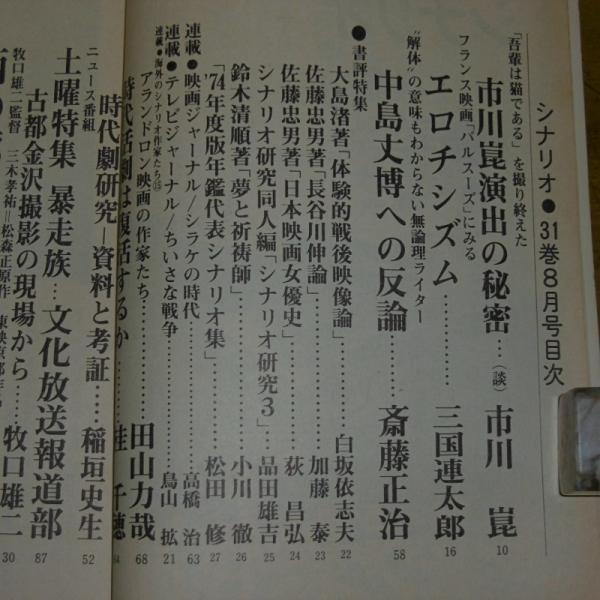 シナリオ●31巻8月号目次
「吾輩は猫である」を撮り終えた
市川崑演出の秘密…(談)市川 崑 10
フランス映画「バルスーズ」にみる
エロチシズム………三国連太郎 16
"解体"の意味もわからない無論理ライター
中島丈博への反論……斎藤正治 58
●書評特集
大島渚著「体験的戦後映像論」………白坂依志夫 22
佐藤忠男著「長谷川伸論」………加藤 泰 23
佐藤忠男著「日本映画女優史」………荻 昌弘 24
シナリオ研究同人編「シナリオ研究3」…品田雄吉 25
鈴木清順著「夢と祈祷師」………小川 徹 26
「'74年度版年鑑代表シナリオ集」………松田 修 27
連載●映画ジャーナル/シラケの時代………高橋 治 63
連載●テレビジャーナル/ちいさな戦争………鳥山 拡 21
連載●海外のシナリオ作家たち⑮
アランドロン映画の作家たち………田山力哉 68
時代活劇は復活するか………桂 千穂 64
時代劇研究―資料と考証……稲垣史生 52
ニュース番組
土曜特集 暴走族…文化放送報道部 87
古都金沢撮影の現場から……牧口雄二 30
牧口雄二監督 三木孝祐=松森正原作